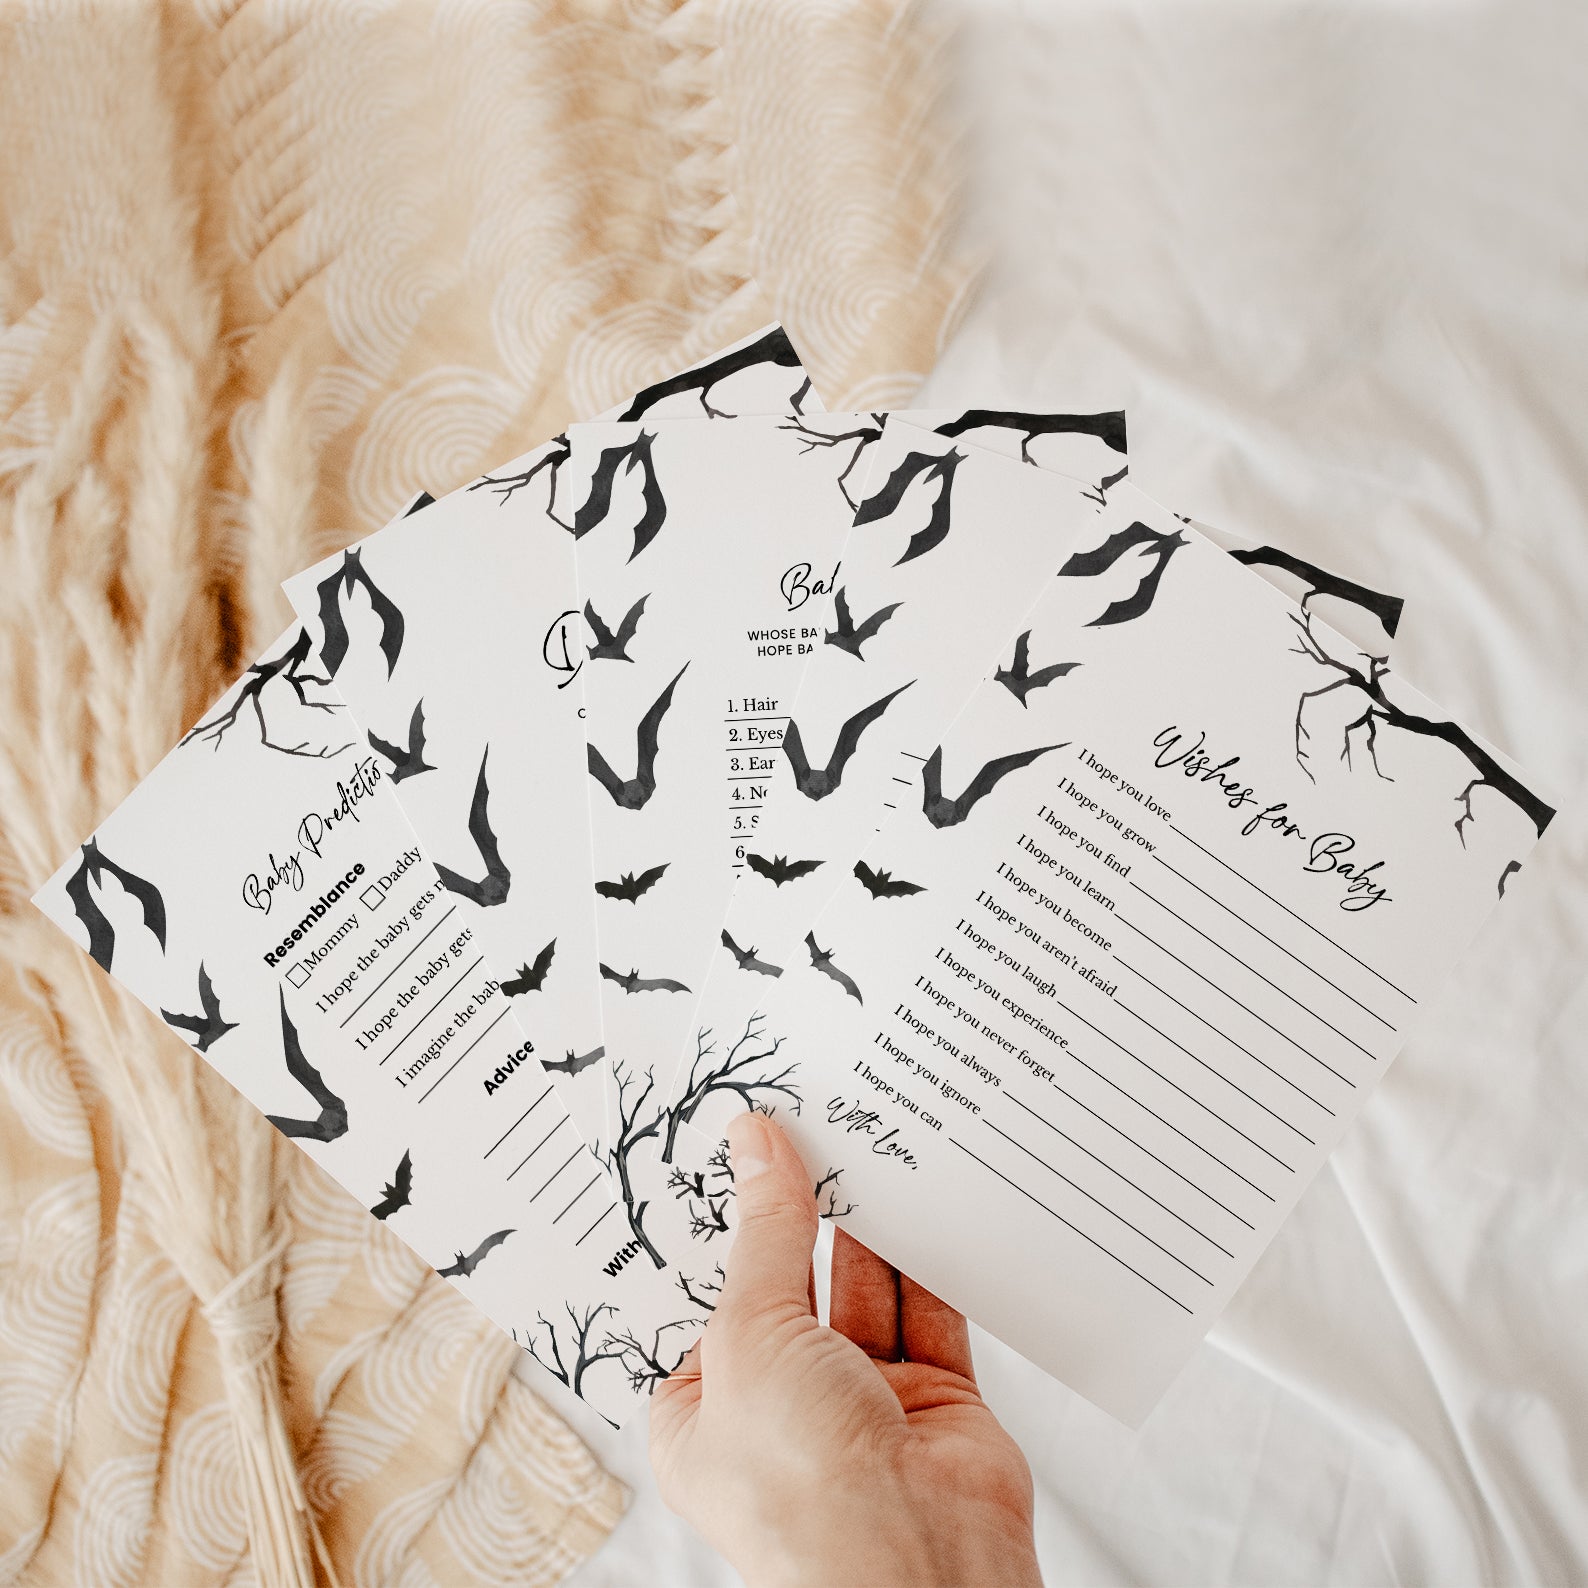 Baby Predictio
Resemblance
Mommy Daddy
I hope the baby gets
I hope the baby gets
I imagine the bab
Advice
With
WHOSE BA
HOPE BA
1. Hair
2. Eyes
3. Ear
4.
5.
6
Wishes for Baby
I hope you love
I hope you grow
I hope you find
I hope you learn
I hope you become
I hope you aren't afraid
I hope you laugh
I hope you experience
I hope you never forget
I hope you always
I hope you ignore
I hope you can
With Love,